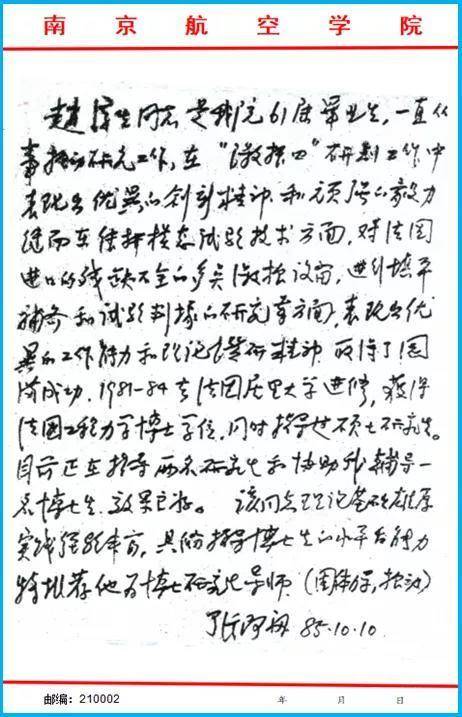 南京航空学院
赵淳生同志是我院61届毕业生，一直从
事振动研究工作，在“激振四”研制工作中
表现出优异的创新精神和顽强的毅力
继而在结构模态试验技术方面，对法国
进口的残缺不全的多点激振设备，进行填平
补齐和试验判据的研究等方面，表现出优
异的工作能力和理论
成功，1981-84去法国 大学进修，获得
法国工程力学博士学位，同时指导过硕士研究生。
目前正在指导两名研究生和协助我辅导一
名博士生，效果良好。该同志理论基础雄厚
实践经验丰富，具备指导博士生的水平和能力
特推荐他为博士研究生导师（固体力学，振动）
张阿舟 85.10.10
邮编：210002
年 月 日